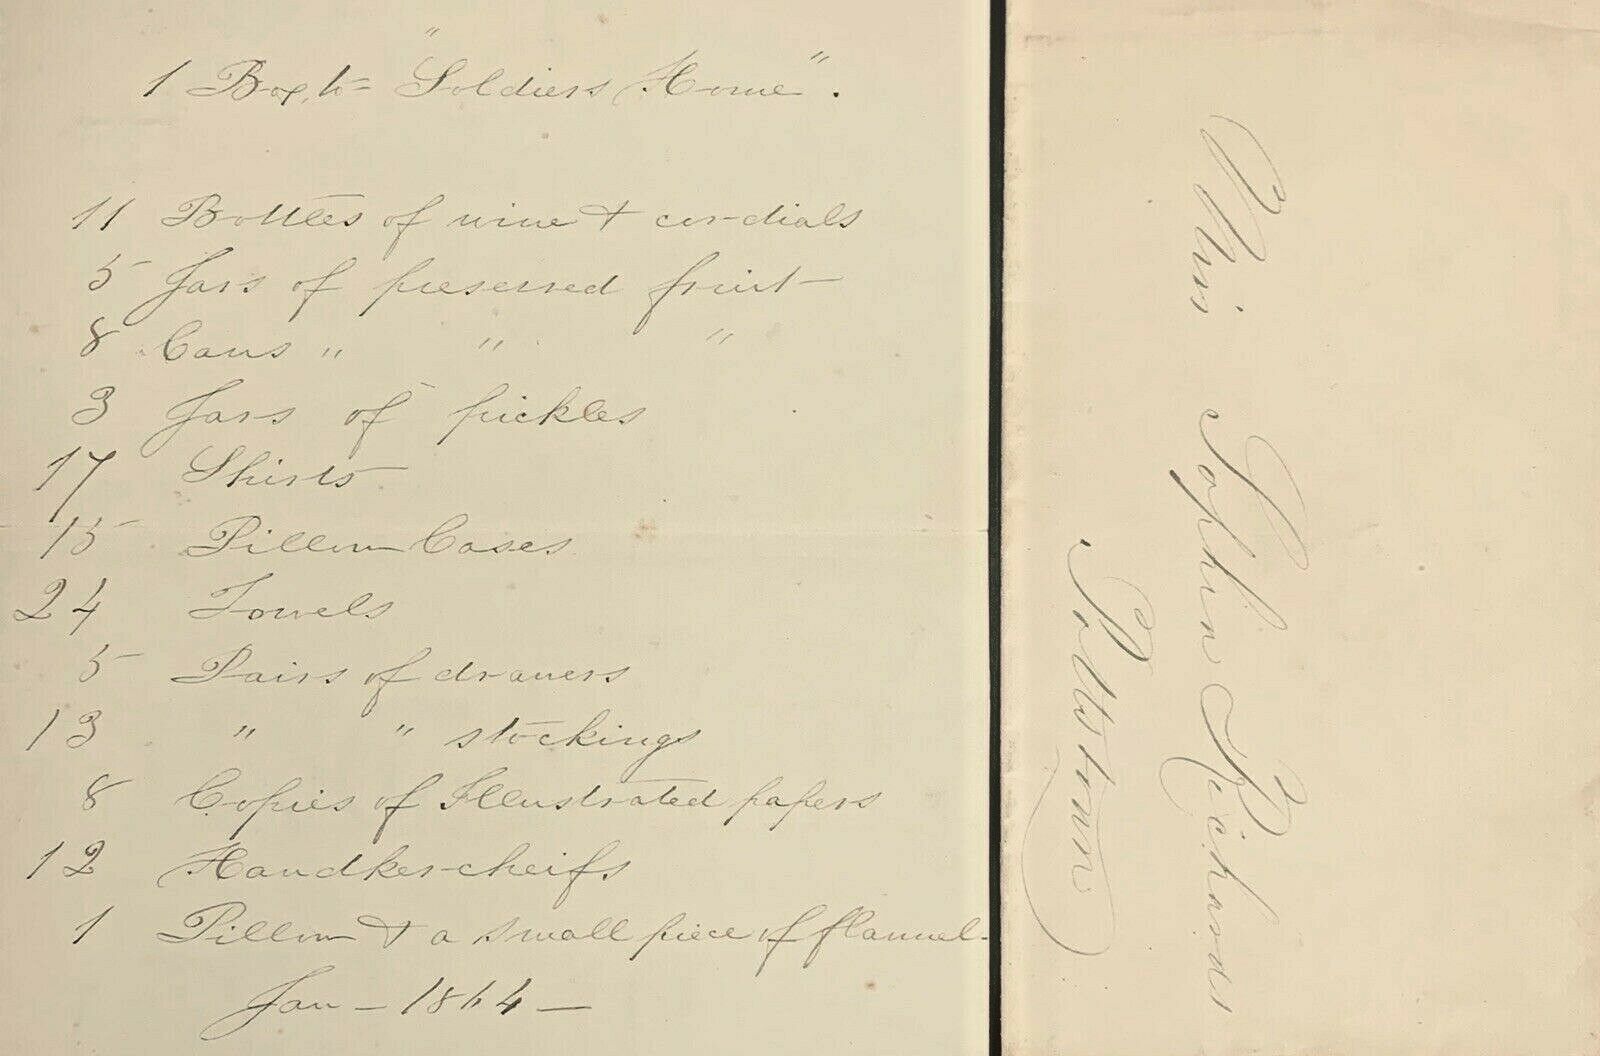 1 Box, to "Soldiers Home".
11 Bottles of wine & cordials
5 Jars of preserved fruit
8 Cans " " "
3 Jars of pickles
17 Shirts
15 Pillow Cases
24 Towels
5 Pairs of drawers
13 " " stockings
8 Copies of Illustrated papers
12 Handkercheifs
1 Pillow & a small piece of flannel.
Jan - 1864 -
Miss Sophie Richards
Pottstown